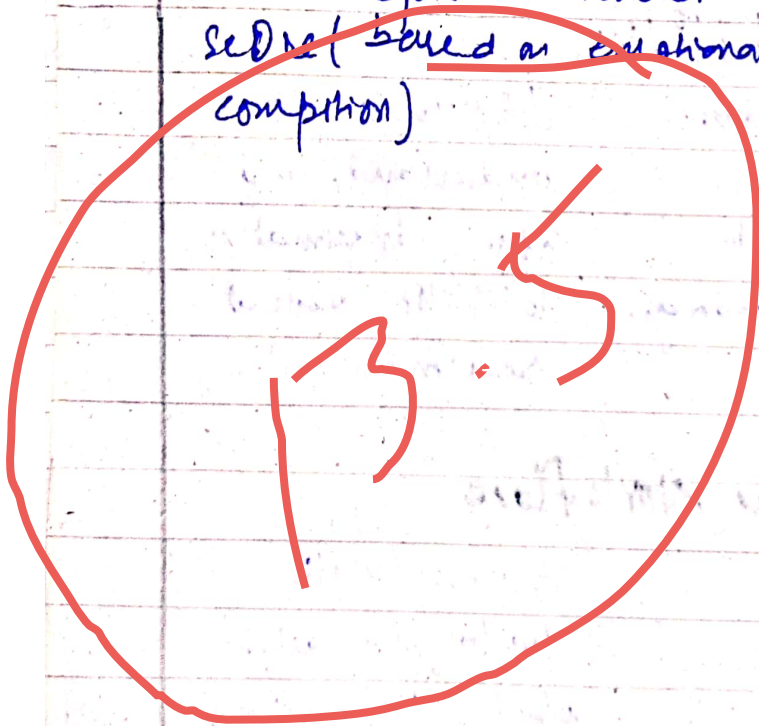 score (based on emotional
compition)
13.5